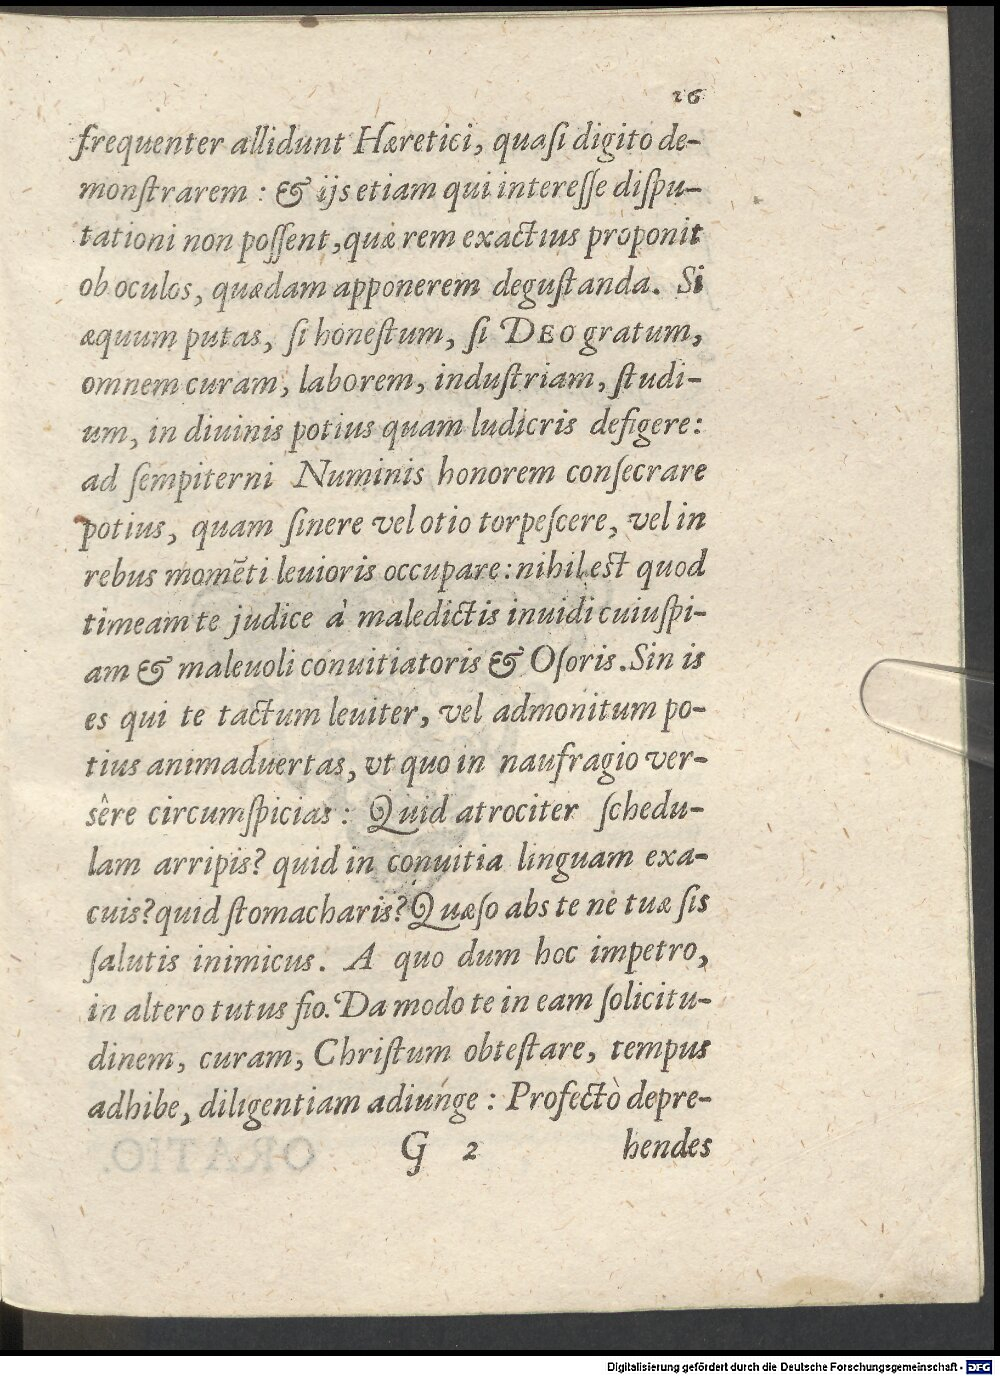 26
frequenter allidunt Hæretici, quaſi digito de-
monſtrarem : & ijs etiam qui intereſſe diſpu-
tationi non poſſent, quæ rem exactius proponit
ob oculos, quædam apponerem deguſtanda. Si
æquum putas, ſi honeſtum, ſi DEO gratum,
omnem curam, laborem, induſtriam, ſtudi-
um, in diuinis potius quam ludicris defigere:
ad ſempiterni Numinis honorem conſecrare
potius, quam ſinere vel otio torpeſcere, vel in
rebus momẽti leuioris occupare: nihil eſt quod
timeam te judice à maledictis inuidi cuiuſpi-
am & maleuoli conuitiatoris & Oſoris. Sin is
es qui te tactum leuiter, vel admonitum po-
tius animaduertas, vt quo in naufragio ver-
sêre circumſpicias : Quid atrociter ſchedu-
lam arripis? quid in conuitia linguam exa-
cuis? quid ſtomacharis? Quæſo abs te ne tuæ ſis
ſalutis inimicus. A quo dum hoc impetro,
in altero tutus fio. Da modo te in eam ſolicitu-
dinem, curam, Chriſtum obteſtare, tempus
adhibe, diligentiam adiunge : Profectò depre-
G 2 hendes
ORATIO.
Digitalisierung gefördert durch die Deutsche Forschungsgemeinschaft - DFG